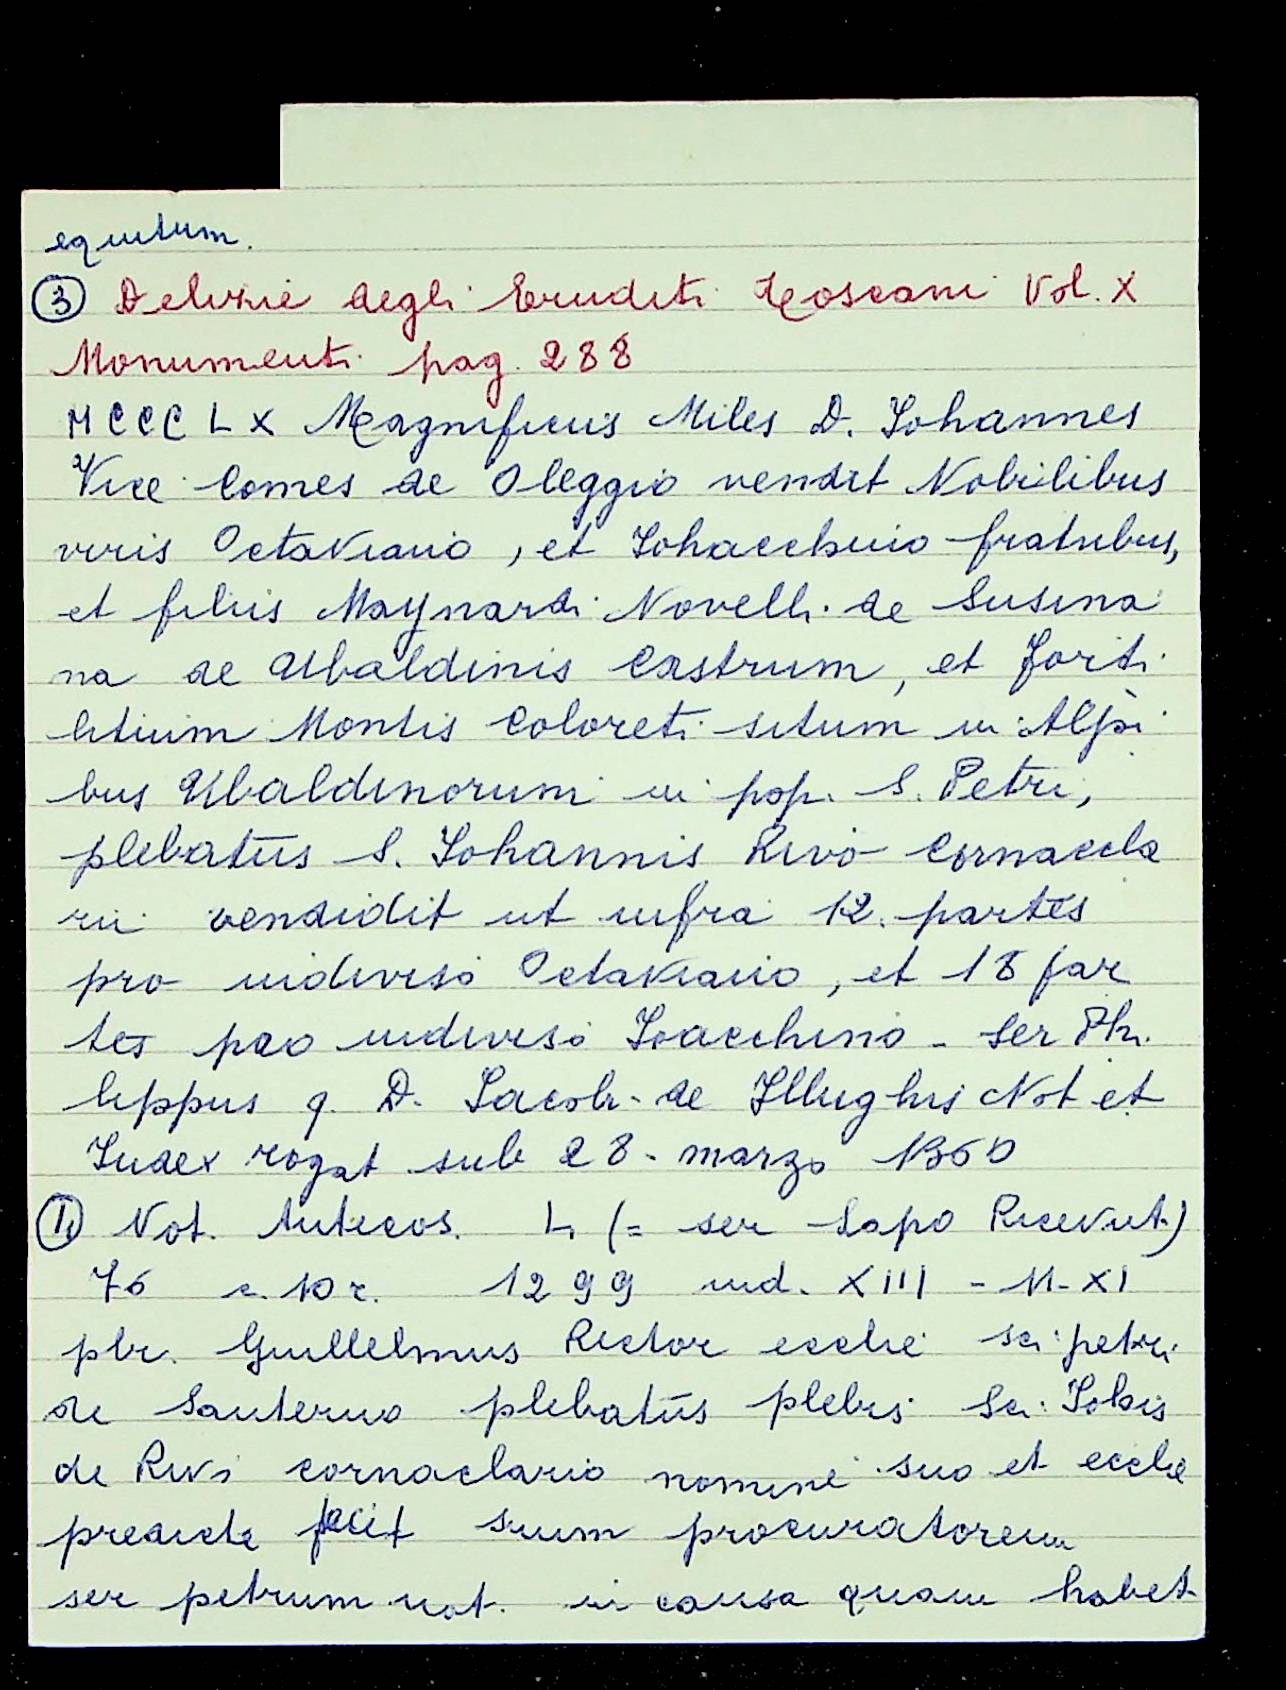 equitum.
③ Delizie degli Eruditi Toscani Vol. X
Monumenti pag. 288
MCCCLX Magnificus Miles D. Johannes
Vice Comes de Oleggio vendit Nobilibus
viris Octaviano, et Johacchino fratribus,
et filiis Maynardi Novelli de Susina
na de Ubaldinis Castrum, et Forti
litium Montis Coloreti situm in Alpi
bus Ubaldinorum in pop. S. Petri,
plebatus S. Johannis Rivo Cornacla
rii vendidit ut infra 12. partes
pro indiviso Octaviano, et 18 par
tes pro indiviso Joacchino - Ser Phi
lippus q. D. Jacobi de Illughis Not et
Judex rogat sub 28. marzo 1360
Not. Antecos. L (= ser Lapo Ricevuti)
76 c. 10 r. 1299 ind. XIII - 11-XI
pbr. Guillelmus Rector ecclie sci petri
de Santerno plebatus plebis Sci Johis
de Rivi cornaclario nomine suo et ecclie
predicte fecit suum procuratorem
ser petrum not. in causa quam habet